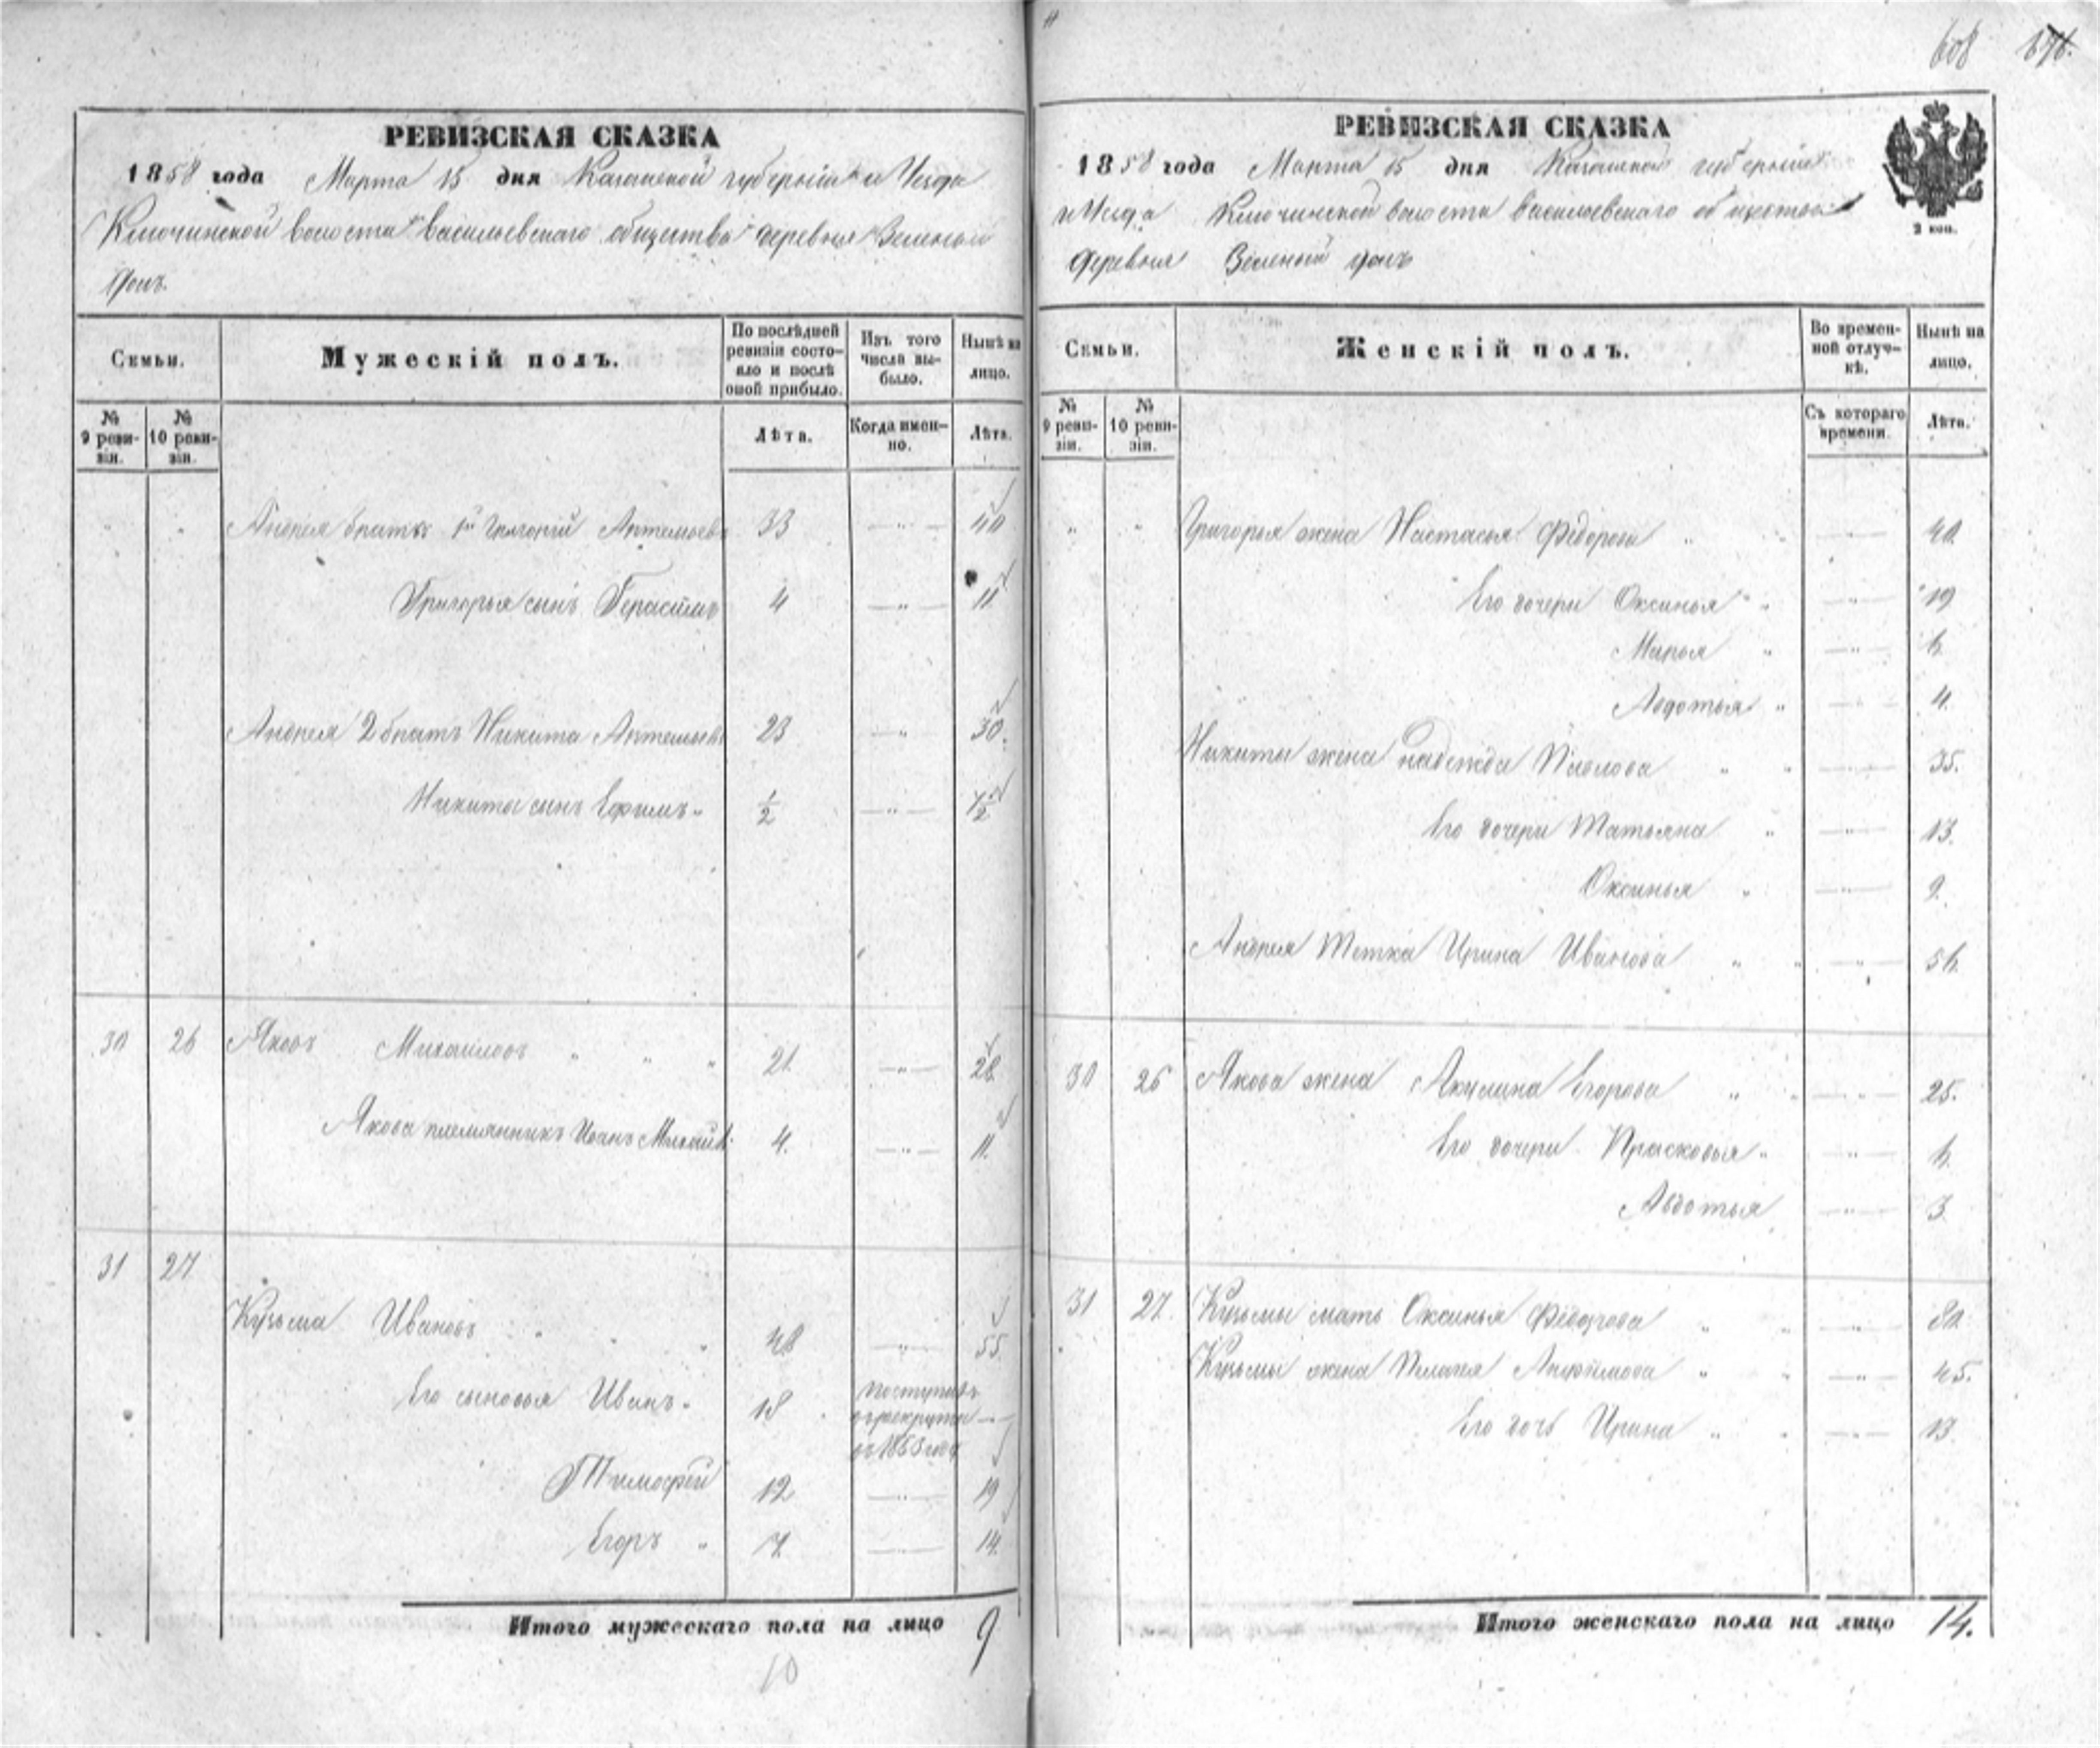 608 676.
РЕВИЗСКАЯ СКАЗКА
1858 года Марта 15 дня Казанской губерніи и Уезда
Ключинской волости Васильевскаго общества деревня Зеленый
РЕВИЗСКАЯ СКАЗКА
1858 года Марта 15 дня Казанской губерніи
и Уезда Ключинской волости Васильевскаго общества
деревня Зеленый
2 коп.
Семьи.
Мужескій полъ.
По послѣдней ревизіи состо-
яло и послѣ
оной прибыло.
Изъ того
числа вы-
было.
Нынѣ на
лицо.
№
9 реви-
зіи.
№
10 реви-
зіи.
Лѣта.
Когда имен-
но.
Лѣта.
Андрея братья 1й Григорій Артемьевъ 33 — " — 40
Григорья сынъ Герасимъ 4 — " — 11
Андрея 2 братъ Никита Артемьевъ 23 — " — 30.
Никиты сынъ Ефимъ " 1/2 — " — 7 1/2
30 26 Яковъ Михайловъ " " " 21. — " — 28
Якова племянникъ Иванъ Михайл. 4. — " — 11.
31 27
Кузьма Ивановъ " " 48 — " — 55.
Его сыновья Иванъ " 18 поступилъ
въ рекруты —
въ 1853 году
Тимофей 12 — " — 19
Егоръ " 7. — " — 14.
Итого мужескаго пола на лицо 9
10
Семьи.
Женскій полъ.
Во времен-
ной отлуч-
кѣ.
Нынѣ на
лицо.
№
9 реви-
зіи.
№
10 реви-
зіи.
Съ котораго
времени.
Лѣта.
" " Григорья жена Настасья Федорова " — " — 40.
Его дочери Оксинья " — " — 19
Марья " — " — 6.
Авдотья " — " — 4.
Никиты жена Надежда Павлова " " — " — 35.
Его дочери Татьяна " — " — 13.
Оксинья " — " — 9.
Андрея Тетка Ирина Иванова " " — " — 56.
30 26 Якова жена Акулина Егорова " " — " — 25.
Его дочери Прасковья " — " — 6.
Авдотья — " — 3
31 27. Кузьмы мать Оксинья Федорова " " — " — 80.
Кузьмы жена Пелагея Анфимова " " — " — 45.
Его дочь Ирина " " — " — 13.
Итого женскаго пола на лицо 14.